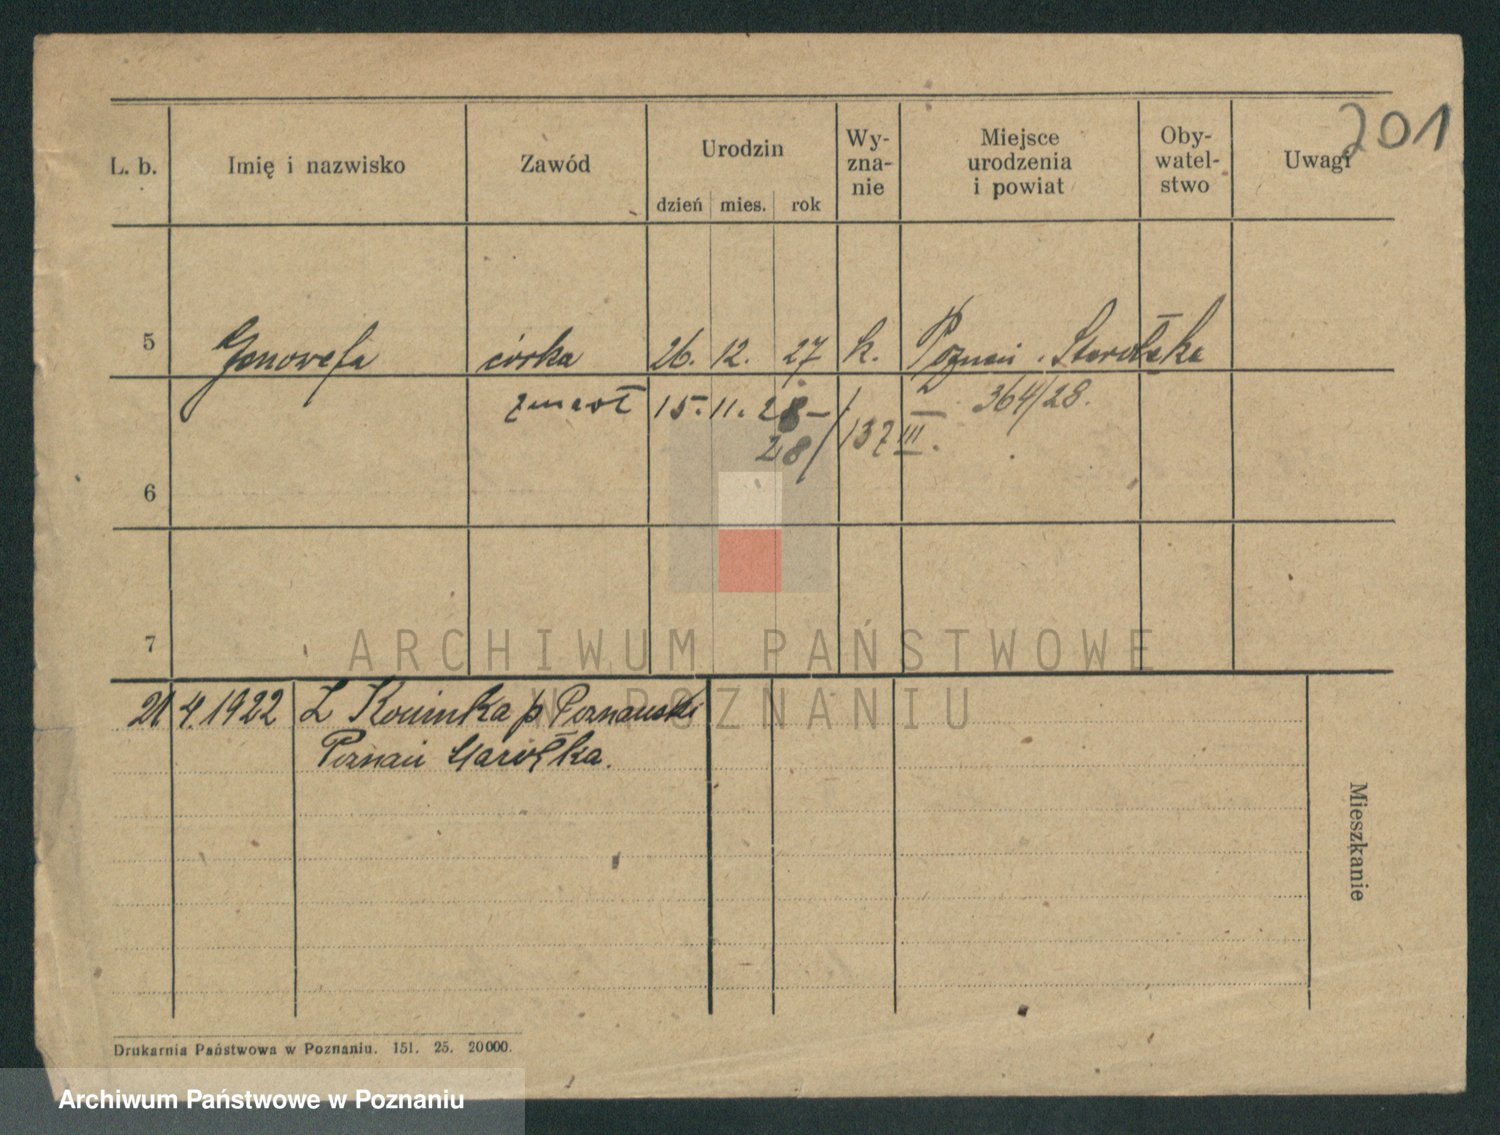 201
L. b. Imię i nazwisko Zawód Urodzin dzień mies. rok Wy-zna-nie Miejsce urodzenia i powiat Oby-watel-stwo Uwagi
5 Genowefa córka 26. 12. 27 k. Poznań . Starołęka
zmarł 15. 11. 28 364/28.
28/137 III.
6
7
ARCHIWUM PAŃSTWOWE
W POZNANIU
21 4. 1922 Z p Poznański
Poznań Starołka.
Mieszkanie
Drukarnia Państwowa w Poznaniu. 151. 25. 20000.
Archiwum Państwowe w Poznaniu